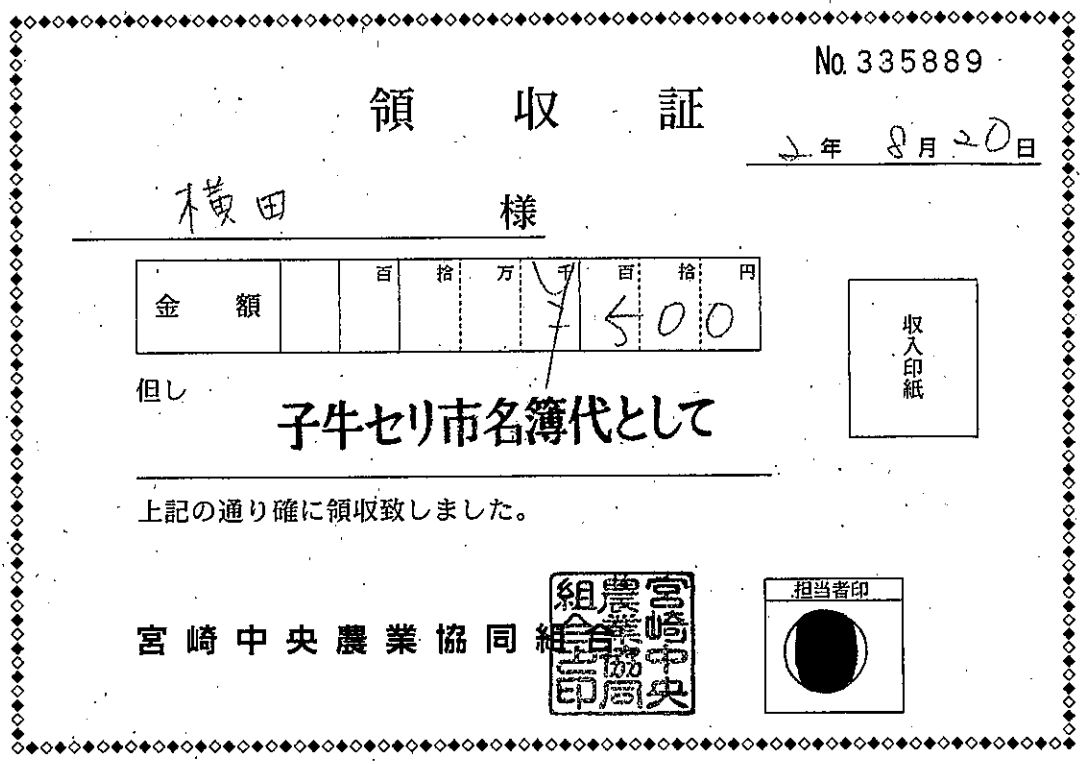 No. 335889
領収証
2年 8月20日
横田 様
金額 百 拾 万 千 百 拾 円
¥500
収入印紙
但し
子牛セリ市名簿代として
上記の通り確に領収致しました。
宮崎中央農業協同組合
宮崎中央農業協同組合之印
担当者印